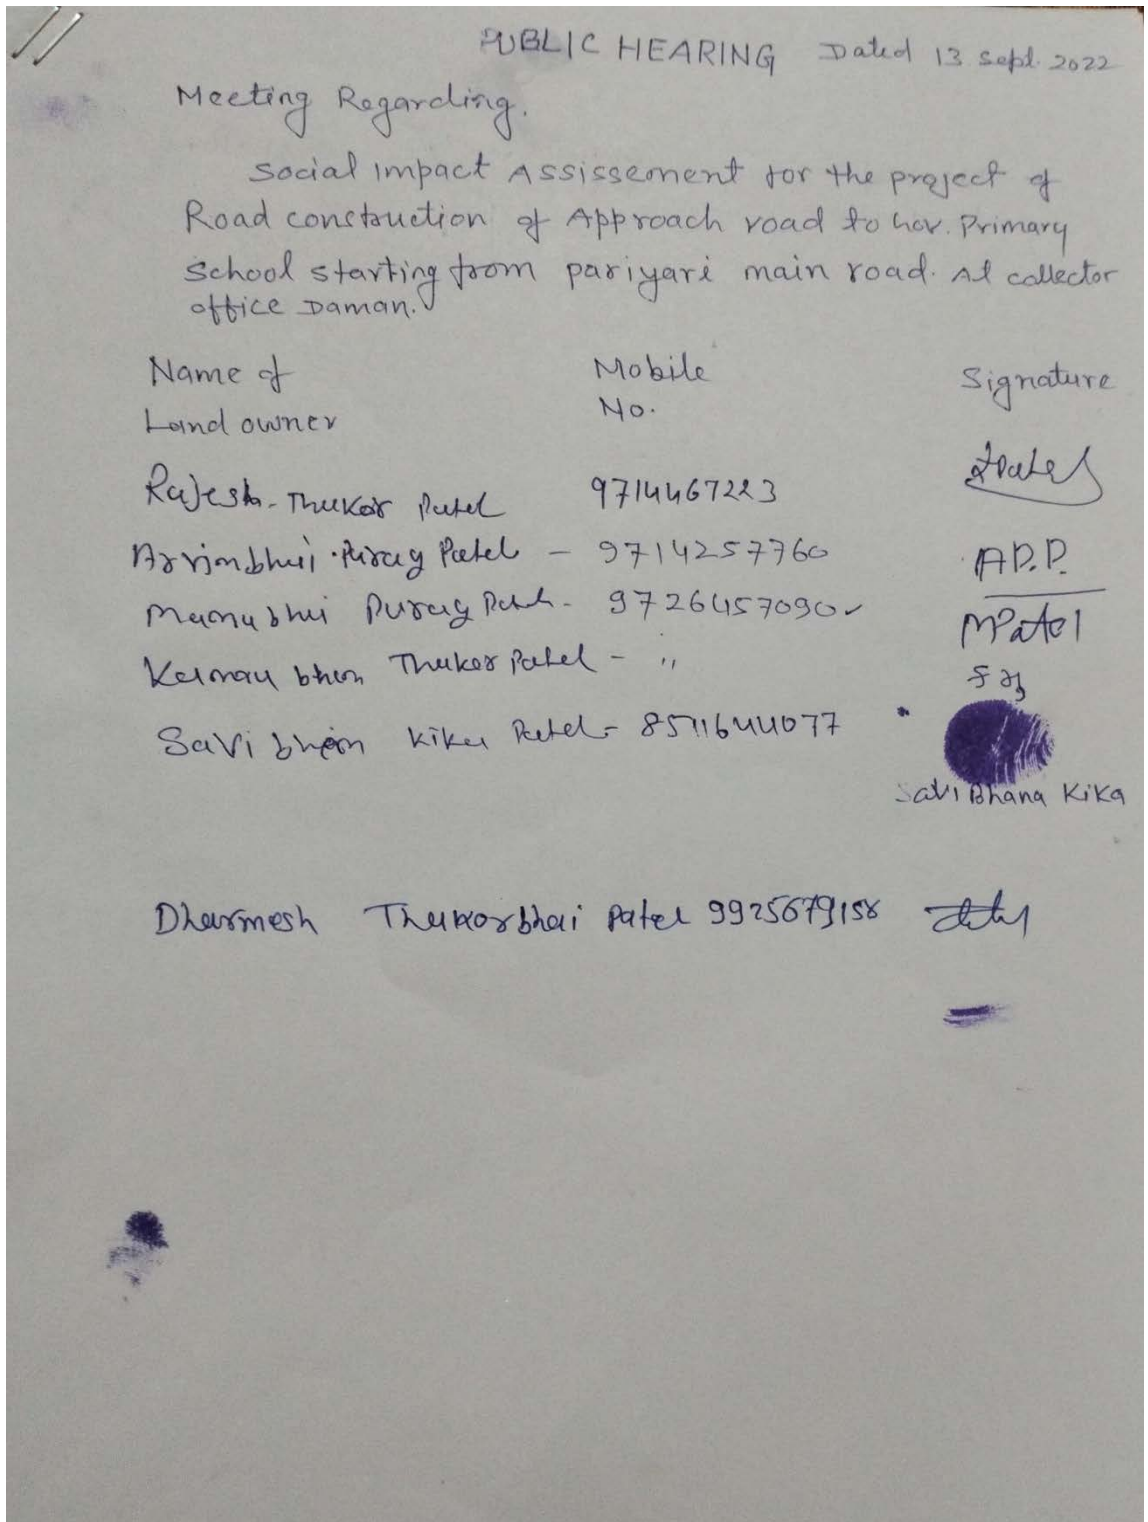 PUBLIC HEARING Dated 13 Sept. 2022
Meeting Regarding.
Social Impact Assissement for the project of
Road construction of Approach road to Gov. Primary
School starting from pariyari main road. At collector
office Daman.
Name of Mobile Signature
Land owner No.
Rajesh - Thukor Patel 9714467223
Arvindbhai Parag Patel - 9714257760 A P. P.
Manubhai Parag Patel - 9726457090 MPatel
Thukor Patel - "
Savi bhen Kika Patel - 8511644077
Savi Bhana Kika
Dharmesh Thukorbhai Patel 9925679158